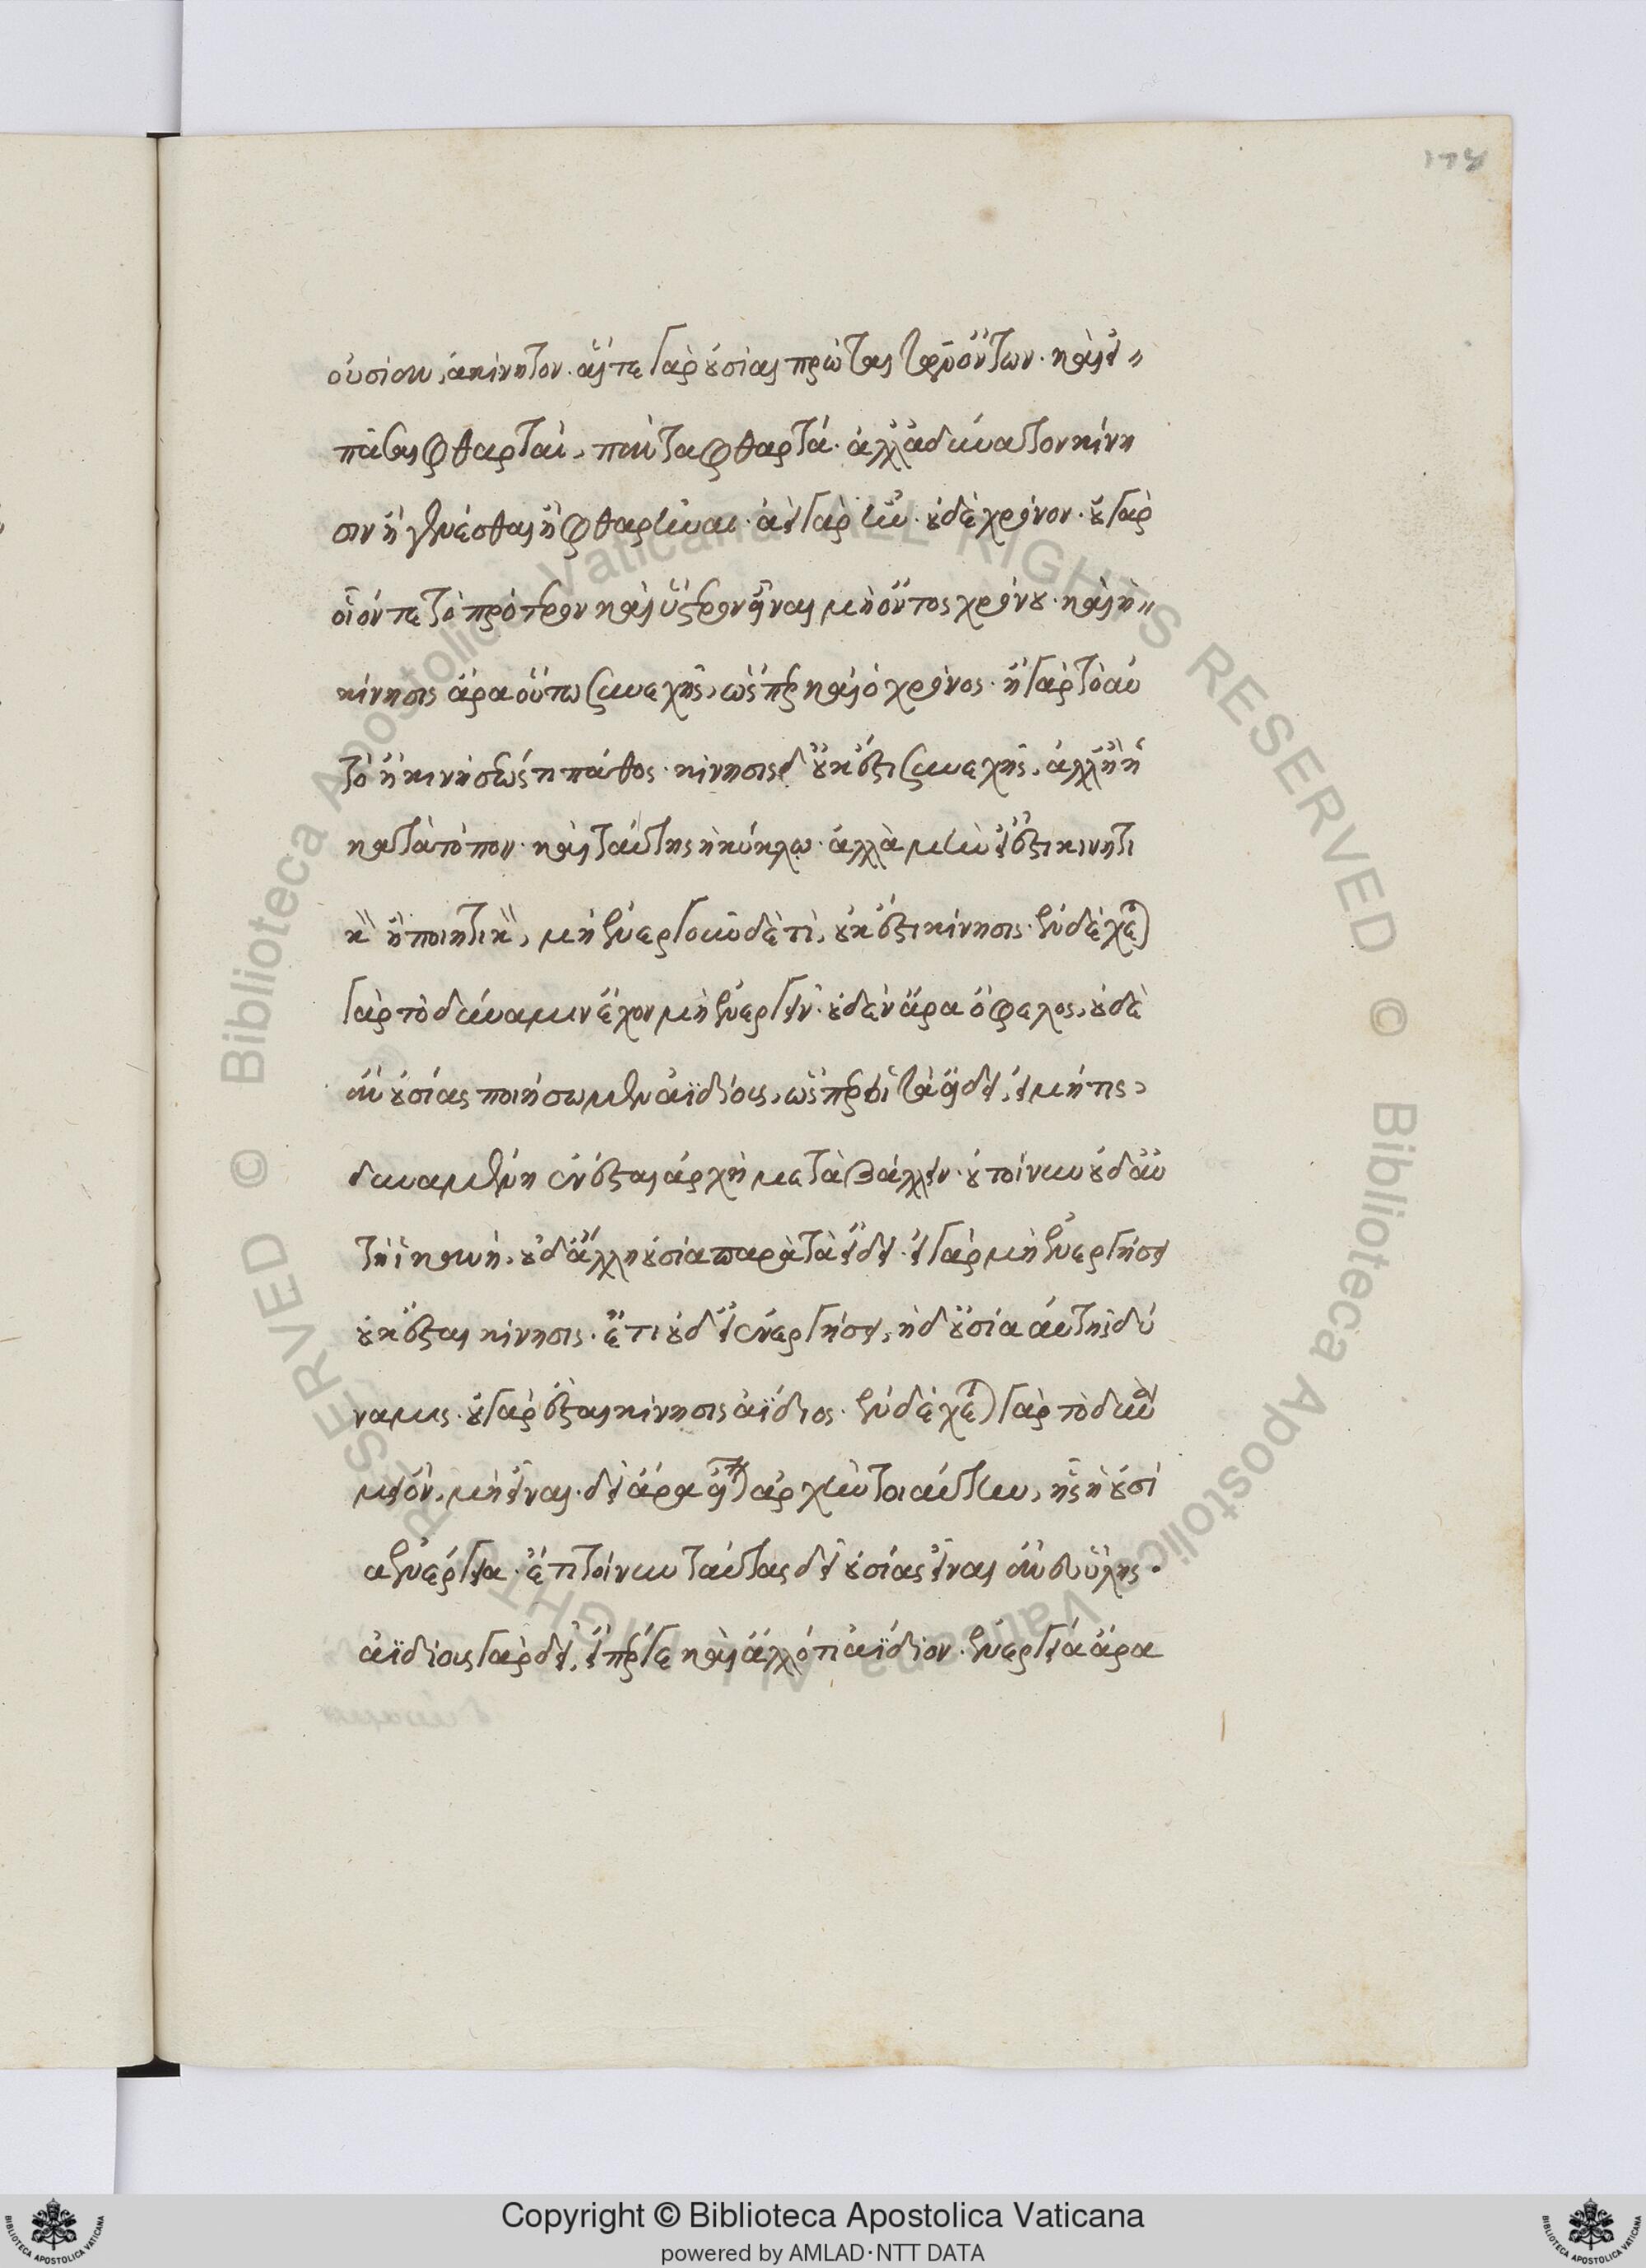 οὐσίαν, ἀκίνητον. αἵ τε γὰρ οὐσίαι πρῶται τῶν ὄντων. καὶ εἰ
πᾶσαι φθαρταὶ, πάντα φθαρτά. ἀλλ' ἀδύνατον κίνη
σιν ἢ γενέσθαι ἢ φθαρῆναι. ἀεὶ γὰρ ἦν. οὐδὲ χρόνον. οὐ γὰρ
οἷόν τε τὸ πρότερον καὶ ὕστερον εἶναι μὴ ὄντος χρόνου. καὶ ἡ
κίνησις ἄρα οὕτω συνεχὴς, ὥσπερ καὶ ὁ χρόνος. ἢ γὰρ τὸ αὐ
τὸ ἢ κινήσεώς τι πάθος. κίνησις δ' οὐκ ἔστι συνεχὴς, ἀλλ' ἢ ἡ
κατὰ τόπον. καὶ ταύτης ἡ κύκλῳ. ἀλλὰ μὴν εἰ ἔστι κινητι
κὸν ἢ ποιητικὸν, μὴ ἐνεργοῦν δέ τι, οὐκ ἔστι κίνησις. ἐνδέχεται
γὰρ τὸ δύναμιν ἔχον μὴ ἐνεργεῖν. οὐδὲν ἄρα ὄφελος, οὐδὲ
ἂν οὐσίας ποιήσωμεν ἀϊδίους, ὥσπερ οἱ τὰ εἴδη, εἰ μή τις
δυναμένη ἐνέσται ἀρχὴ μεταβάλλειν. οὐ τοίνυν οὐδ' αὐ
τὴ ἱκανὴ, οὐδ' ἄλλη οὐσία παρὰ τὰ εἴδη. εἰ γὰρ μὴ ἐνεργήσει
οὐκ ἔσται κίνησις. ἔτι οὐδ' εἰ ἐνεργήσει, ἡ δ' οὐσία αὐτῆς δύ
ναμις. οὐ γὰρ ἔσται κίνησις ἀΐδιος. ἐνδέχεται γὰρ τὸ δυνά
μει ὂν, μὴ εἶναι. δεῖ ἄρα εἶναι ἀρχὴν τοιαύτην, ἧς ἡ οὐσί
α ἐνέργεια. ἔτι τοίνυν ταύτας δεῖ οὐσίας εἶναι ἄνευ ὕλης.
ἀϊδίους γὰρ δεῖ, εἴπερ γε καὶ ἄλλό τι ἀΐδιον. ἐνεργείᾳ ἄρα
Copyright © Biblioteca Apostolica Vaticana
powered by AMLAD·NTT DATA